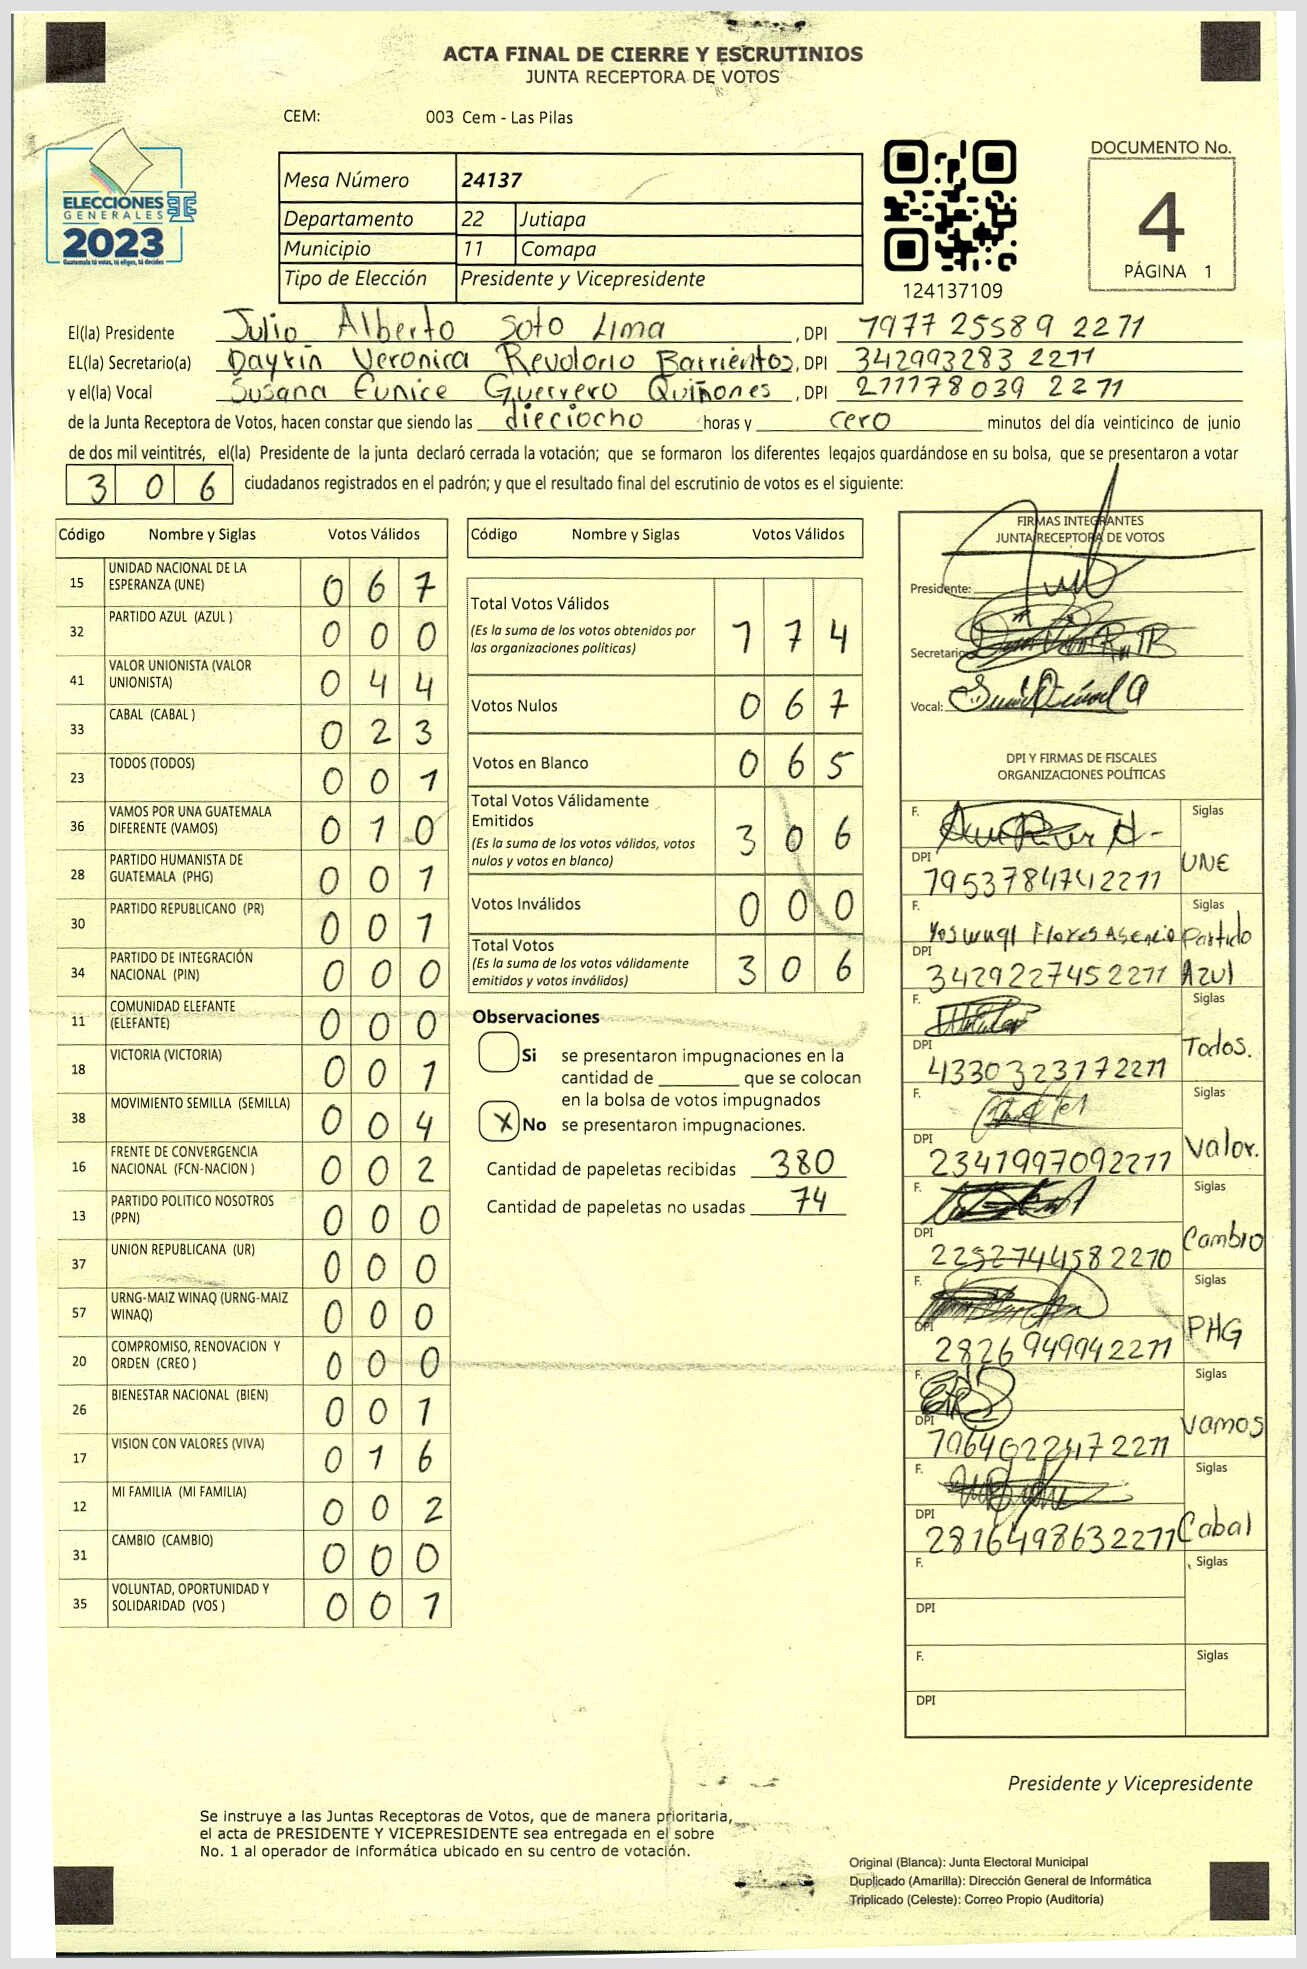 ACTA FINAL DE CIERRE Y ESCRUTINIOS
JUNTA RECEPTORA DE VOTOS
CEM: 003 Cem - Las Pilas
ELECCIONES
GENERALES
2023
Guatemala tú votas, tú eliges, tú decides
Mesa Número 24137
Departamento 22 Jutiapa
Municipio 11 Comapa
Tipo de Elección Presidente y Vicepresidente
124137109
DOCUMENTO No.
4
PÁGINA 1
El(la) Presidente Julio Alberto Soto Lima, DPI 1977 25589 2271
EL(la) Secretario(a) Dayrin Veronica Revolorio Barrientos, DPI 342993283 2211
y el(la) Vocal Susana Eunice Guerrero Quiñones, DPI 271178039 2271
de la Junta Receptora de Votos, hacen constar que siendo las dieciocho horas y cero minutos del día veinticinco de junio
de dos mil veintitrés, el(la) Presidente de la junta declaró cerrada la votación; que se formaron los diferentes legajos guardándose en su bolsa, que se presentaron a votar
3 0 6 ciudadanos registrados en el padrón; y que el resultado final del escrutinio de votos es el siguiente:
Código Nombre y Siglas Votos Válidos
15 UNIDAD NACIONAL DE LA ESPERANZA (UNE) 0 6 7
32 PARTIDO AZUL (AZUL ) 0 0 0
41 VALOR UNIONISTA (VALOR UNIONISTA) 0 4 4
33 CABAL (CABAL ) 0 2 3
23 TODOS (TODOS) 0 0 1
36 VAMOS POR UNA GUATEMALA DIFERENTE (VAMOS) 0 1 0
28 PARTIDO HUMANISTA DE GUATEMALA (PHG) 0 0 1
30 PARTIDO REPUBLICANO (PR) 0 0 1
34 PARTIDO DE INTEGRACIÓN NACIONAL (PIN) 0 0 0
11 COMUNIDAD ELEFANTE (ELEFANTE) 0 0 0
18 VICTORIA (VICTORIA) 0 0 1
38 MOVIMIENTO SEMILLA (SEMILLA) 0 0 4
16 FRENTE DE CONVERGENCIA NACIONAL (FCN-NACION ) 0 0 2
13 PARTIDO POLITICO NOSOTROS (PPN) 0 0 0
37 UNION REPUBLICANA (UR) 0 0 0
57 URNG-MAIZ WINAQ (URNG-MAIZ WINAQ) 0 0 0
20 COMPROMISO, RENOVACION Y ORDEN (CREO ) 0 0 0
26 BIENESTAR NACIONAL (BIEN) 0 0 1
17 VISION CON VALORES (VIVA) 0 1 6
12 MI FAMILIA (MI FAMILIA) 0 0 2
31 CAMBIO (CAMBIO) 0 0 0
35 VOLUNTAD, OPORTUNIDAD Y SOLIDARIDAD (VOS ) 0 0 1
Código Nombre y Siglas Votos Válidos
Total Votos Válidos 1 7 4
(Es la suma de los votos obtenidos por
las organizaciones politicas)
Votos Nulos 0 6 7
Votos en Blanco 0 6 5
Total Votos Válidamente
Emitidos 3 0 6
(Es la suma de los votos válidos, votos
nulos y votos en blanco)
Votos Inválidos 0 0 0
Total Votos
(Es la suma de los votos válidamente
emitidos y votos inválidos) 3 0 6
Observaciones
Si se presentaron impugnaciones en la
cantidad de ________ que se colocan
en la bolsa de votos impugnados
X No se presentaron impugnaciones.
Cantidad de papeletas recibidas 380
Cantidad de papeletas no usadas 74
FIRMAS INTEGRANTES
JUNTA RECEPTORA DE VOTOS
Presidente:
Secretario
Vocal:
DPI Y FIRMAS DE FISCALES
ORGANIZACIONES POLÍTICAS
F. Siglas
DPI 1953784742211 UNE
F. Flores Asencio Siglas Partido
DPI 3429227452211 Azul
F. Siglas
DPI 4330323172211 Todos.
F. Siglas
DPI 2341997092211 Valor.
F. Siglas
DPI 2252744582210 Cambio
F. Siglas
DPI 2826949942211 PHG
F. Siglas
DPI Vamos
F. Siglas
DPI 2816498632271 Cabal
F. Siglas
DPI
F. Siglas
DPI
Presidente y Vicepresidente
Se instruye a las Juntas Receptoras de Votos, que de manera prioritaria,
el acta de PRESIDENTE Y VICEPRESIDENTE sea entregada en el sobre
No. 1 al operador de informática ubicado en su centro de votación.
Original (Blanca): Junta Electoral Municipal
Duplicado (Amarilla): Dirección General de Informática
Triplicado (Celeste): Correo Propio (Auditoría)